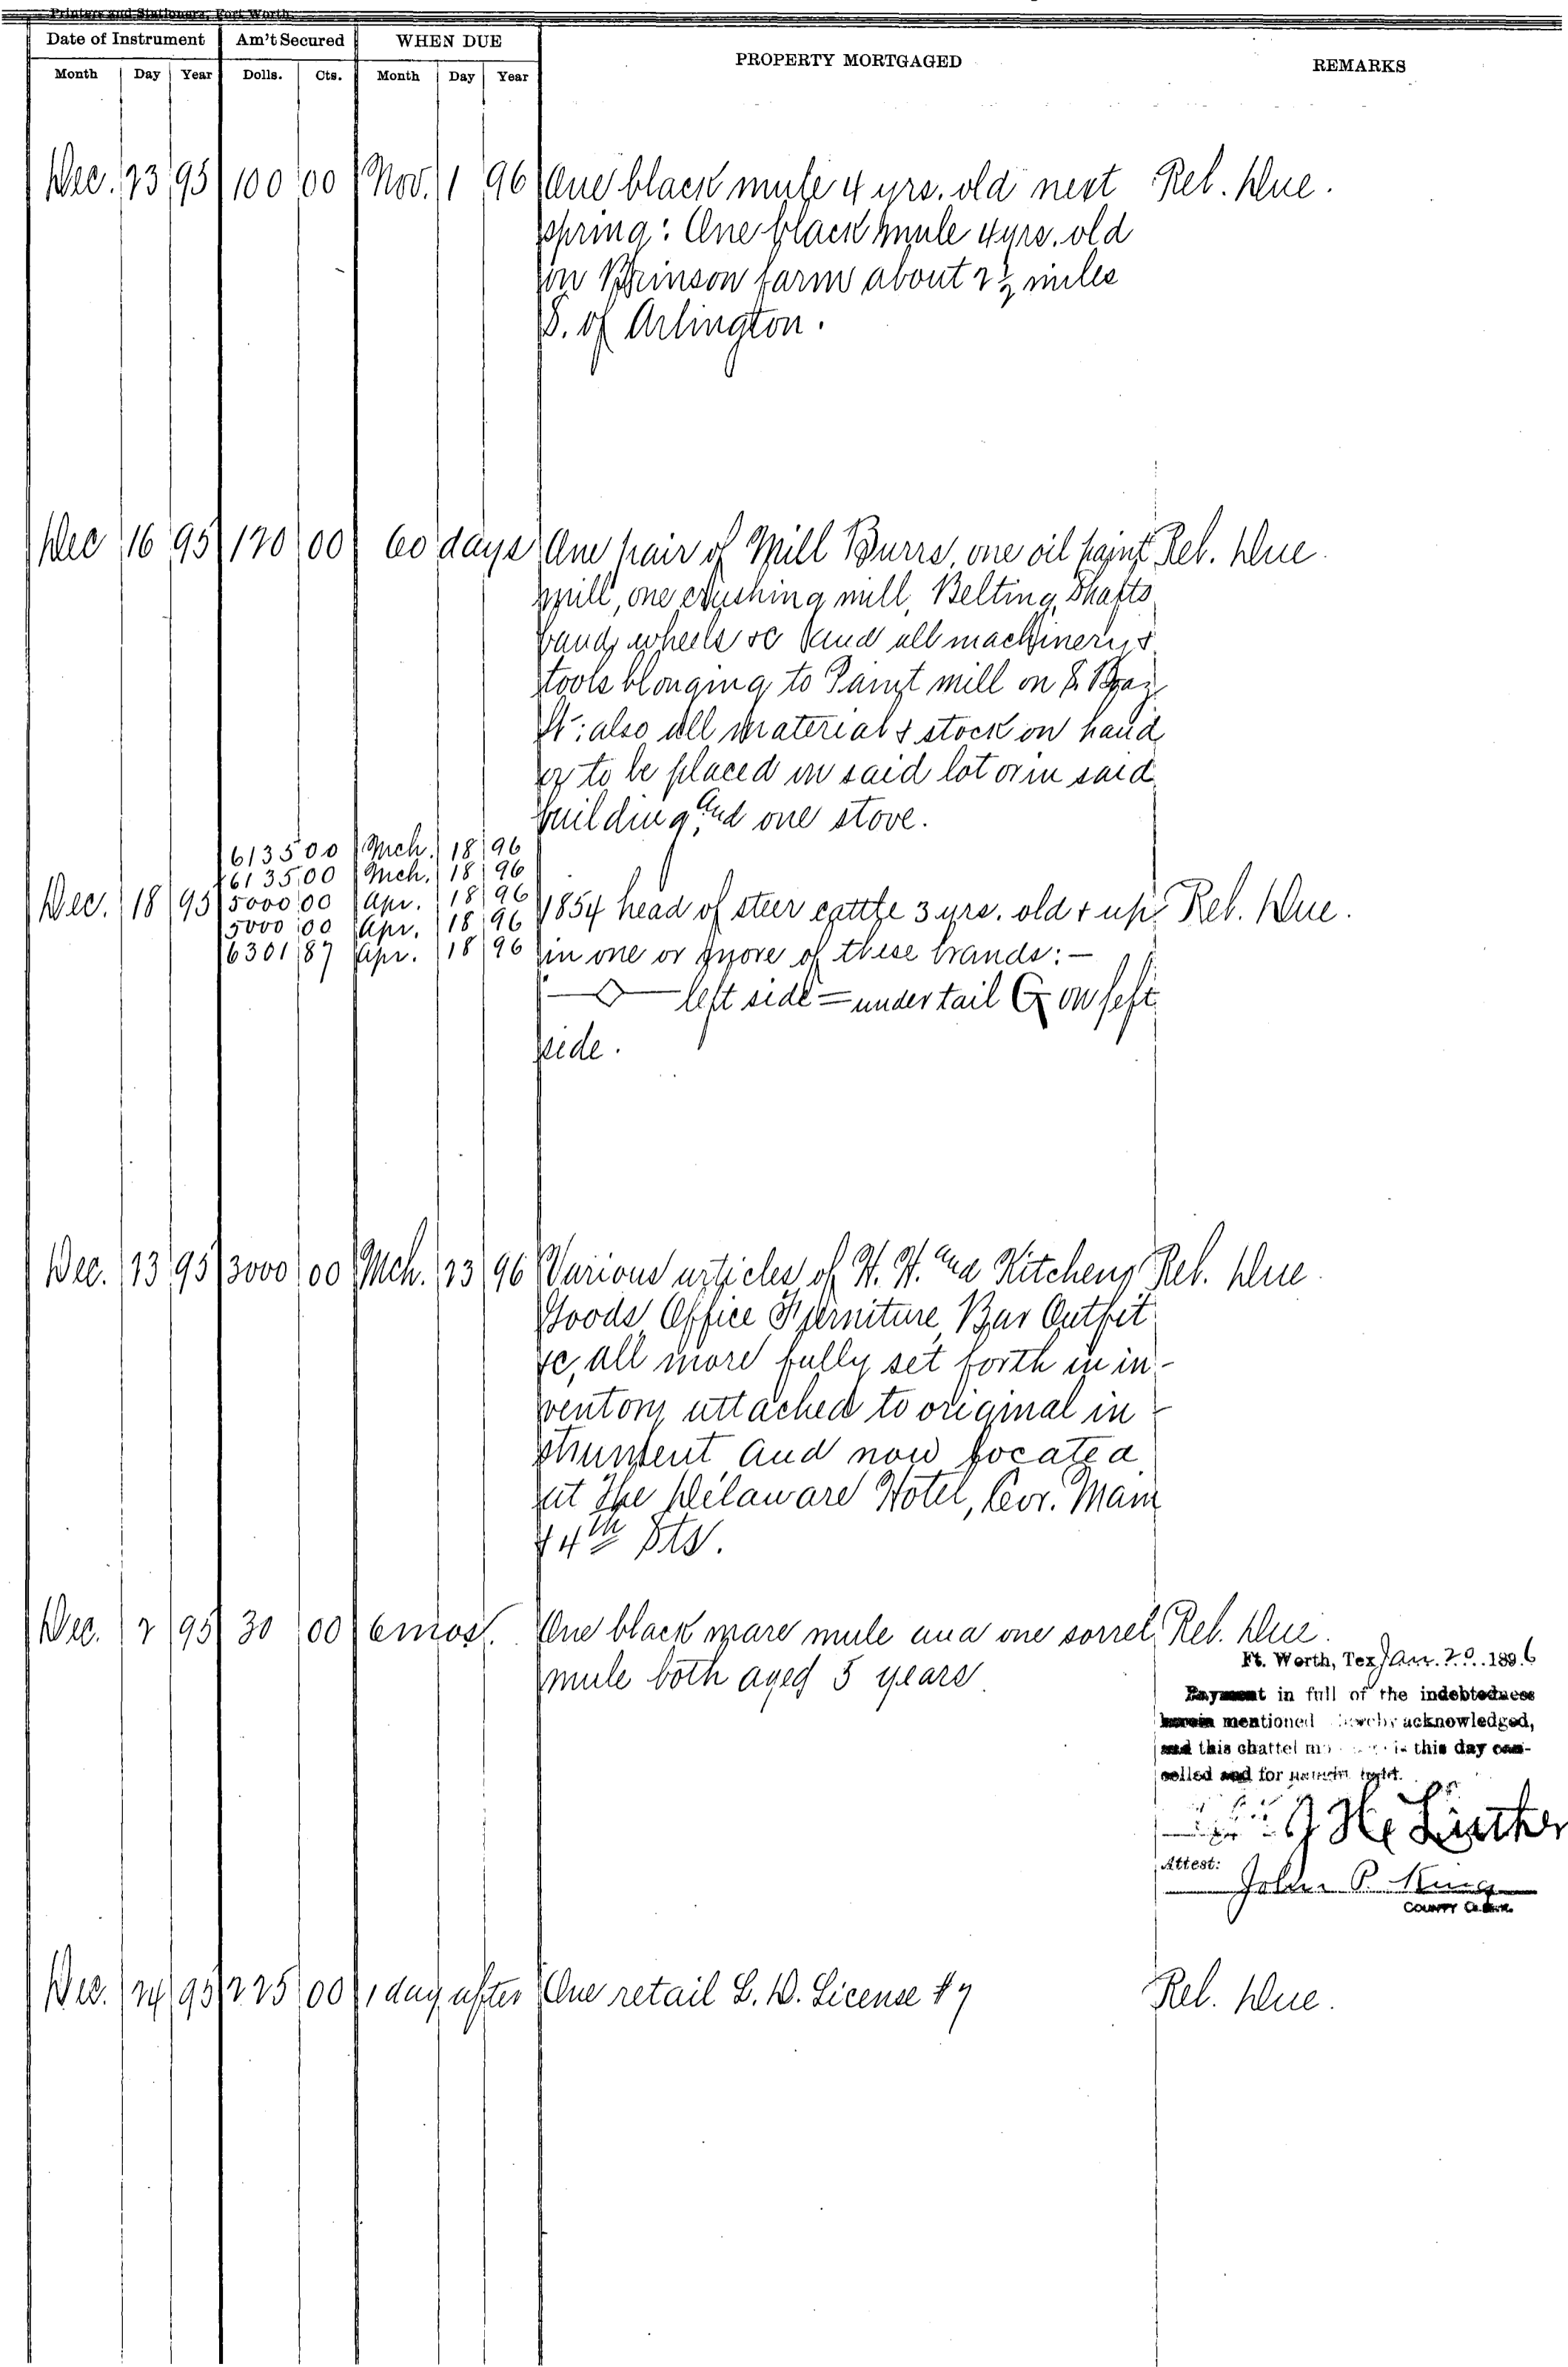 Printers and Stationers, Fort Worth.
Date of Instrument Am't Secured WHEN DUE PROPERTY MORTGAGED REMARKS
Month Day Year Dolls. Cts. Month Day Year
Dec. 23 95 100 00 Nov. 1 96 One black mule 4 yrs. old next Ret. Due.
spring: One black mule 4 yrs. old
on Brinson farm about 2½ miles
S. of Arlington.
Dec 16 95 120 00 60 days One pair of Mill Burrs, one oil paint Ret. Due.
mill, one crushing mill, Belting, Shafts
band wheels &c and all machinery &
tools blonging to Paint mill on E.
St: also all material & stock on hand
or to be placed in said lot or in said
building and one stove.
6135 00 Mch. 18 96
6135 00 Mch. 18 96
Dec. 18 95 5000 00 Apr. 18 96 1854 head of steer cattle 3 yrs. old & up Ret. Due.
5000 00 Apr. 18 96
6301 87 Apr. 18 96 in one or more of these brands: —
—◇— left side = under tail G on left
side.
Dec. 23 95 3000 00 Mch. 23 96 Various articles of H. H. and Kitchen Ret. Due.
Goods, Office Furniture, Bar Outfit
&c, all more fully set forth in in-
ventory attached to original in-
strument and now located
at The Delaware Hotel, Cor. Main
& 4th Sts.
Dec. 2 95 30 00 6 mos. One black mare mule and one sorrel Ret. Due.
mule both aged 5 years
Ft. Worth, Tex Jan. 20. 1896
Payment in full of the indebtedness
herein mentioned acknowledged,
and this chattel is this day can-
celled and for
Attest:
John P. King
COUNTY CLERK.
Dec. 24 95 225 00 1 day after One retail L. D. License #7 Ret. Due.